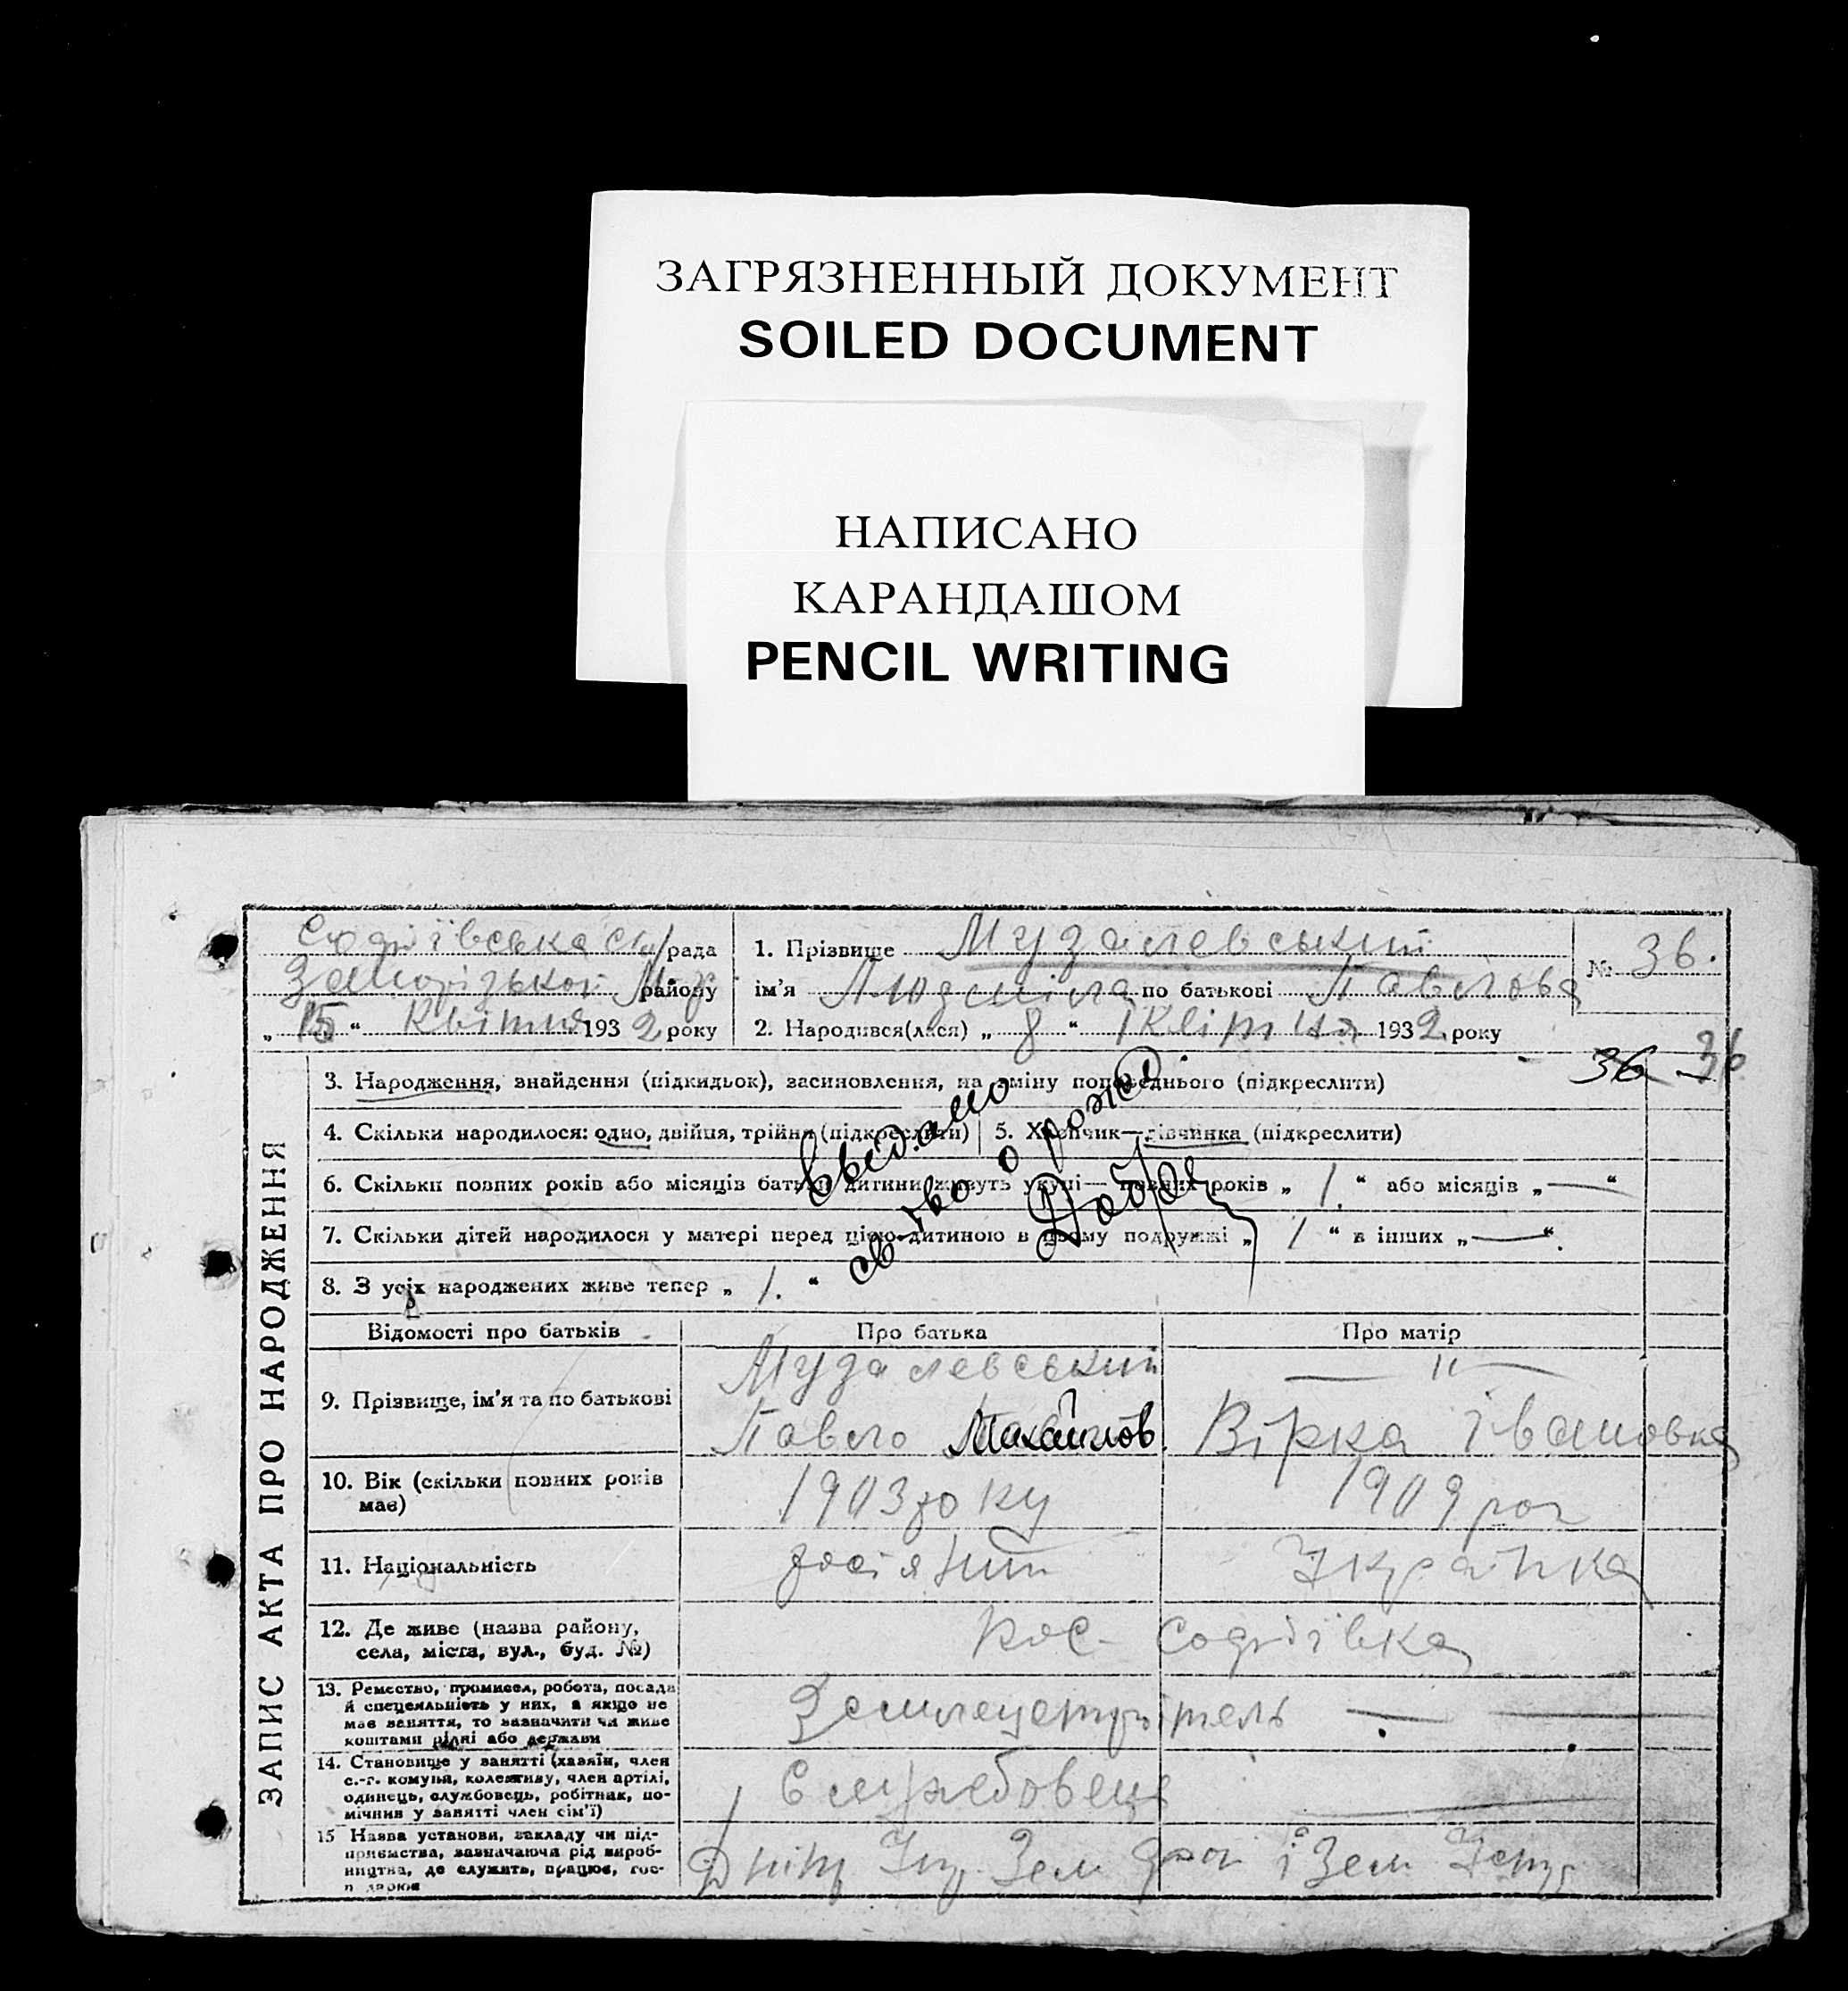 ЗАГРЯЗНЕННЫЙ ДОКУМЕНТ
SOILED DOCUMENT
НАПИСАНО
КАРАНДАШОМ
PENCIL WRITING
ЗАПИС АКТА ПРО НАРОДЖЕННЯ
рада
району
„ 15 “ Квітня 1932 року
1. Прізвище Музалевський
ім’я Людміла по батькові Павлова
2. Народився(лася) „ 8 “ Квітня 1932 року
№ 36.
36 36
3. Народження, знайдення (підкидьок), засиновлення, на зміну попереднього (підкреслити)
4. Скільки народилося: одно, двійця, трійня (підкреслити)
5. Хлопчик—дівчинка (підкреслити)
6. Скільки повних років або місяців батьки дитини живуть укупі— повних років „ 1. “ або місяців „ — “
7. Скільки дітей народилося у матері перед цією дитиною в цьому подружжі „ 1 “ в інших „ — “
8. З усіх народжених живе тепер „ 1. “
св-тво о рожд
Відомості про батьків
Про батька
Про матір
9. Прізвище, ім’я та по батькові
Музалевський
— " —
Павло Михайлов.
Вірка Івановна
10. Вік (скільки повних років
має)
1903 року
1909 рок
11. Національність
росіянин
Українка
12. Де живе (назва району,
села, міста, вул., буд. №)
13. Ремество, промисел, робота, посада
й спеціяльність у них, а якщо не
має заняття, то зазначити чи живе
коштами рідні або держави
14. Становище у занятті (хазяїн, член
с.-г. комуни, колективу, член артілі,
одинець, службовець, робітник, по-
мічник у занятті член сім’ї)
Службовець
15 Назва установи, закладу чи під-
приємства, зазначаючи рід вироб-
ництва, де служить, працює, гос-